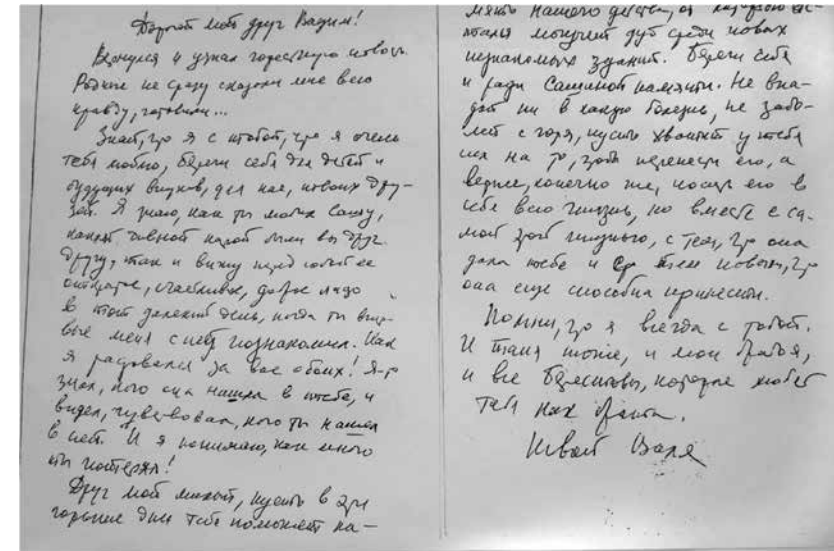 Дорогой мой друг Вадим!
Вернулся и узнал горестную новость.
Родные не сразу сказали мне всю
правду, готовили...
Знай, что я с тобой, что я очень
тебя люблю, береги себя для детей и
будущих внуков, для нас, твоих дру-
зей. Я знаю, как ты любил Сашу,
какой дивной парой были вы друг
другу, так и вижу перед собой ее
открытое, счастливое, доброе лицо
в тот далекий день, когда ты впер-
вые меня с ней познакомил. Как
я радовался за вас обоих! Я-то
знал, кого она нашла в тебе, и
видел, чувствовал, кого ты нашел
в ней. И я понимаю, как много
ты потерял!
Друг мой милый, пусть в эти
горькие дни тебе поможет па-
мять нашего детства, от которого ос-
тался могучий дуб среди новых
незнакомых зданий. Береги себя
и ради Сашиной памяти. Не впа-
дай ни в какую болезнь, не забо-
лей с горя, пусть хватит у тебя
сил на то, чтоб перенести его, а
вернее, конечно же, носить его в
себе всю жизнь, но вместе с са-
мой этой жизнью, с тем, что она
дала тебе и тем новым, что
она еще способна принести.
Помни, что я всегда с тобой.
И Таня тоже, и мои братья,
и все Берестовы, которые любят
тебя как брата.
Твой Валя